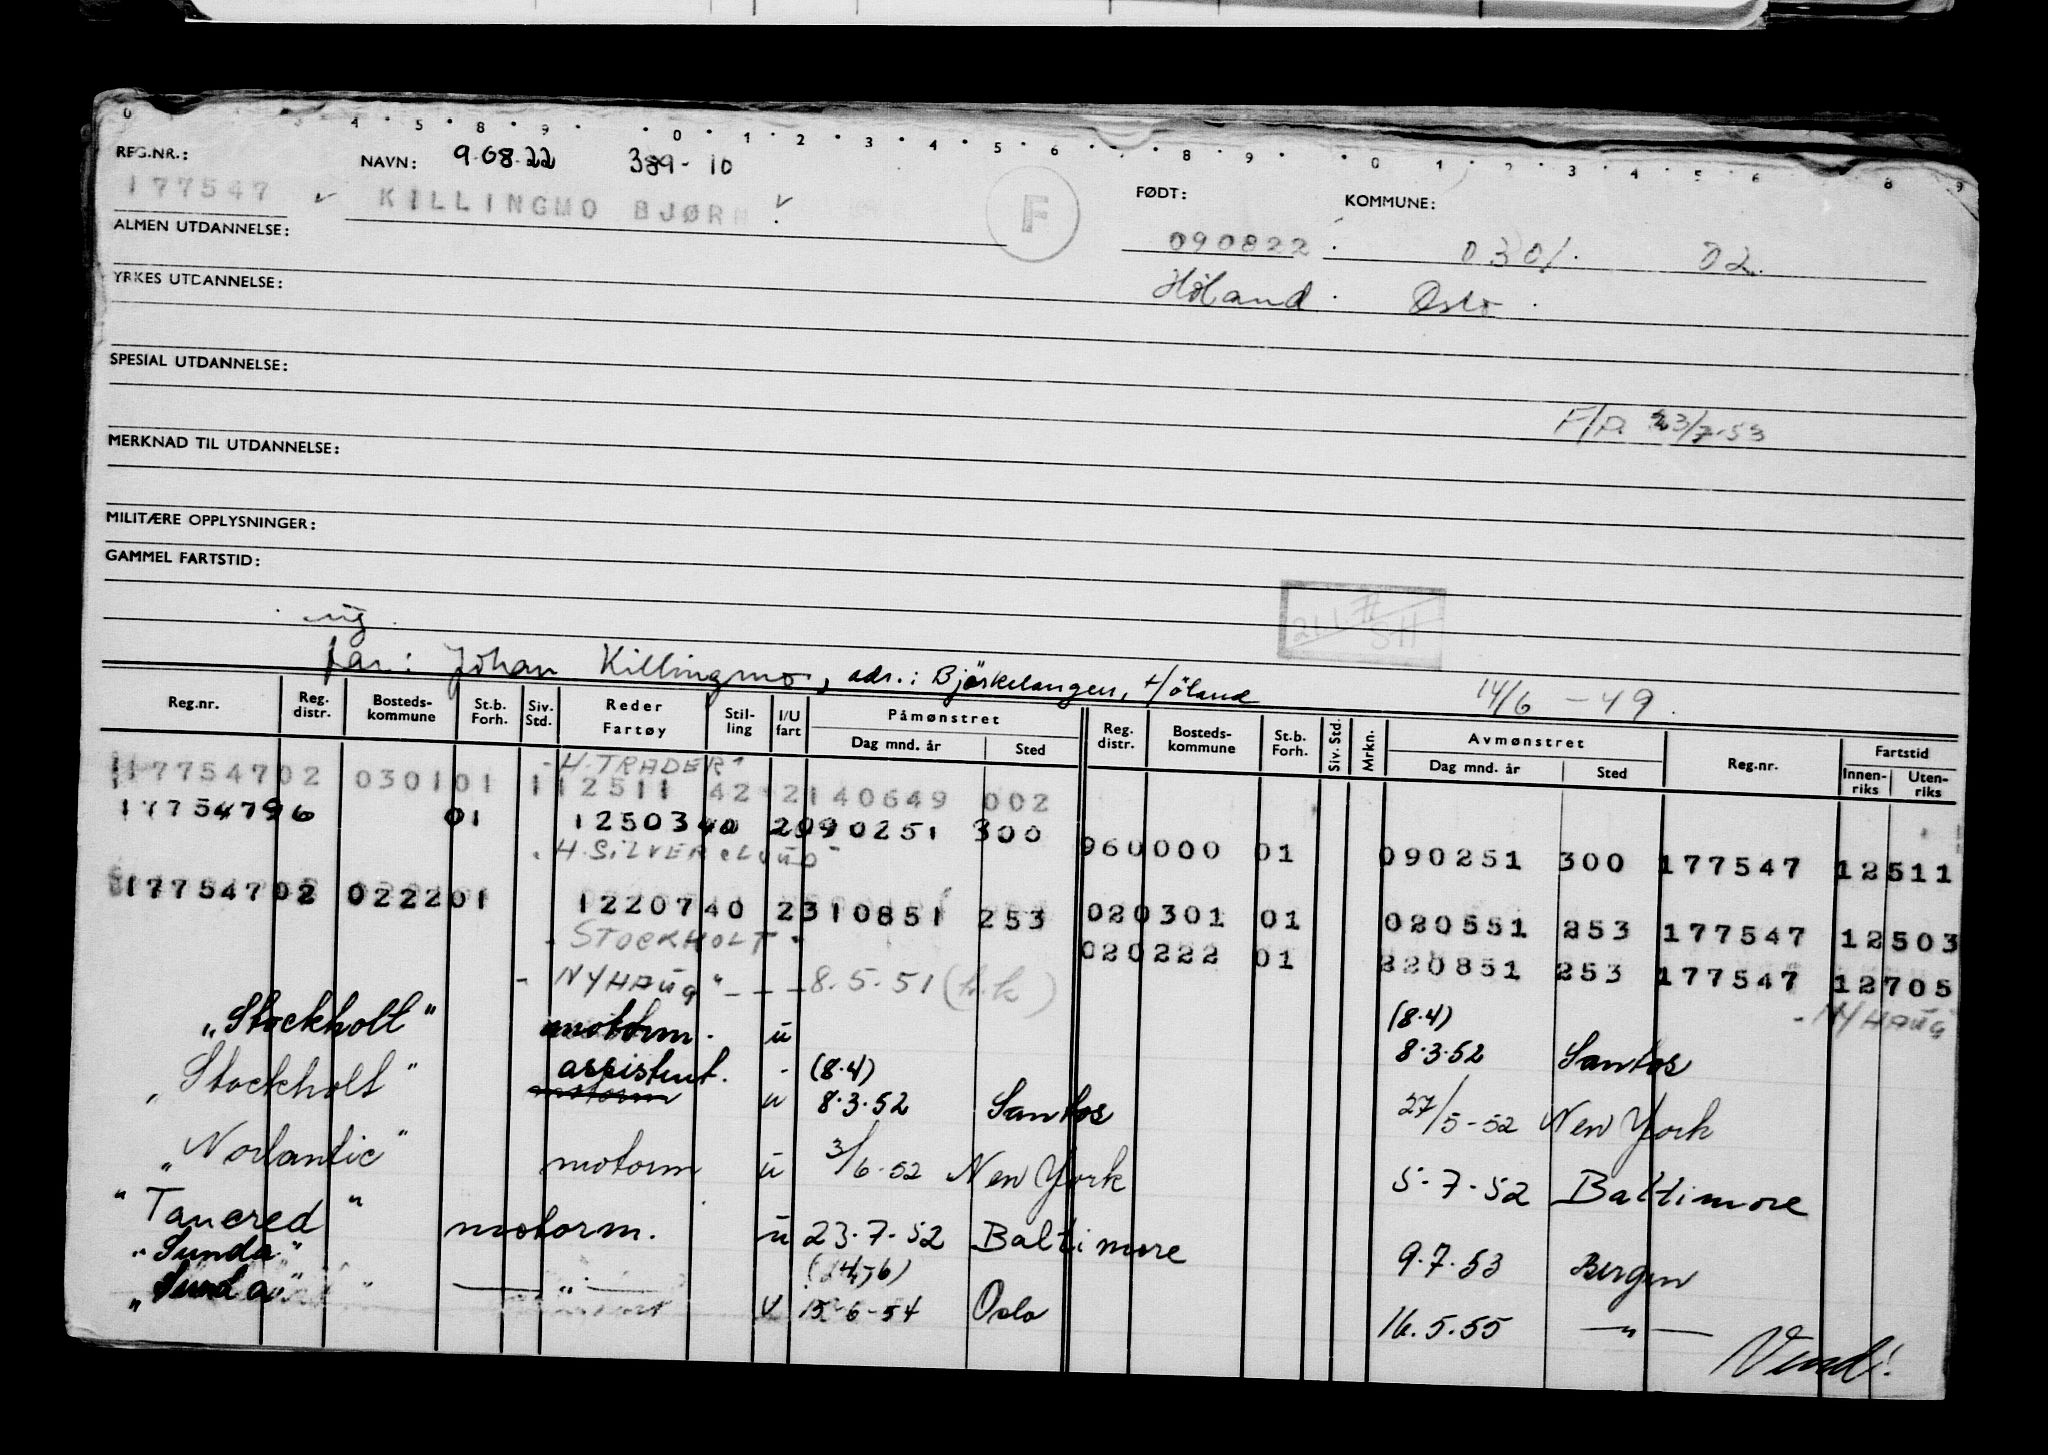 0 4 5 8 9 0 1 2 3 4 5 6 8 9 0 1 2 3 4 5 6 8 9
REG.NR.: NAVN: 9.08.22 389-10 FØDT: KOMMUNE:
177547 KILLINGMO BJØRN F 090822 0301 02
ALMEN UTDANNELSE:
Höland Oslo
YRKES UTDANNELSE:
SPESIAL UTDANNELSE:
F/A 23/7-53
MERKNAD TIL UTDANNELSE:
MILITÆRE OPPLYSNINGER:
GAMMEL FARTSTID:
ug.
far: Johan Killingmo, adr.: Björkelangen, Höland 14/6 -49
Reg.nr. Reg. distr. Bosteds-kommune St.b. Forh. Siv. Std. Reder Fartøy Stil-ling I/U fart Påmønstret Dag mnd. år Sted Reg. distr. Bosteds-kommune St.b. Forh. Siv. Std. Mrkn. Avmønstret Dag mnd. år Sted Reg.nr. Fartstid Innen-riks Uten-riks
"H. TRADER"
177547 02 0301 01 1 12511 42 2 140649 002
177547 96 01 12503 40 2 090251 300 96 0000 01 090251 300 177547 12511
"H. SILVERCLOUD"
177547 02 0222 01 12207 40 2 310851 253 02 0301 01 020551 253 177547 12503
"STOCKHOLT"
02 0222 01 220851 253 177547 12705
"NYHAUG" - - - 8.5.51 (h.k) "NYHAUG"
"Stockholt" motorm. u (8.4) 8.3.52 Santos
"Stockholt" assistent. motorm u (8.4) 8.3.52 Santos 27/5-52 New York
"Norlantic" motorm u 3/6-52 New York 5-7-52 Baltimore
"Tancred" motorm. u 23.7-52 Baltimore 9.7.53 Bergen
"Sunda"
"Sunda" — " — u 15-6-54 Oslo 16.5.55 — " —
Vend!